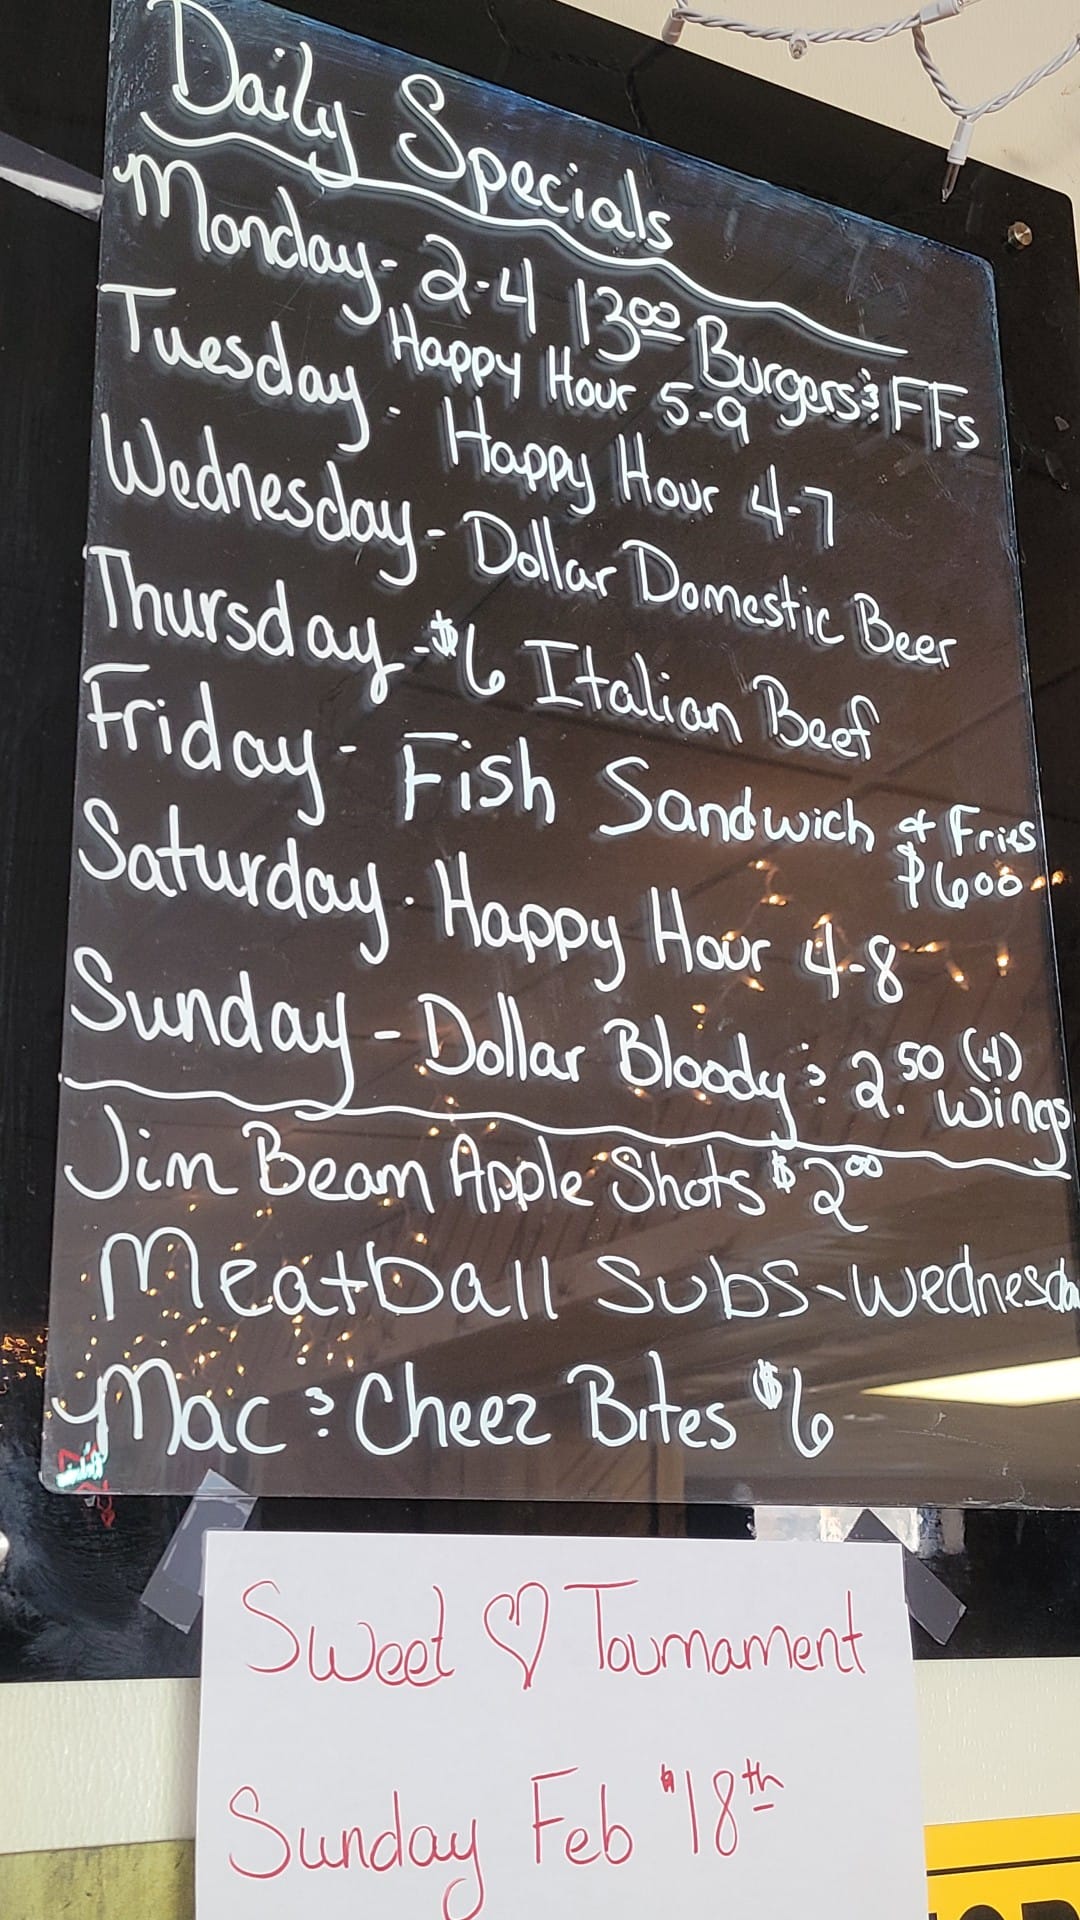 Daily Specials
Monday- 2-4 13⁰⁰ Burgers & FFs
Happy Hour 5-9
Tuesday- Happy Hour 4-7
Wednesday- Dollar Domestic Beer
Thursday-$6 Italian Beef
Friday- Fish Sandwich & Fries
$600
Saturday- Happy Hour 4-8
Sunday- Dollar Bloody & 2.50 (4)
wings
Jim Beam Apple Shots $2⁰⁰
Meatball subs-Wednesda
Mac & Cheez Bites $6
Sweet ♡ Tournament
Sunday Feb 18th